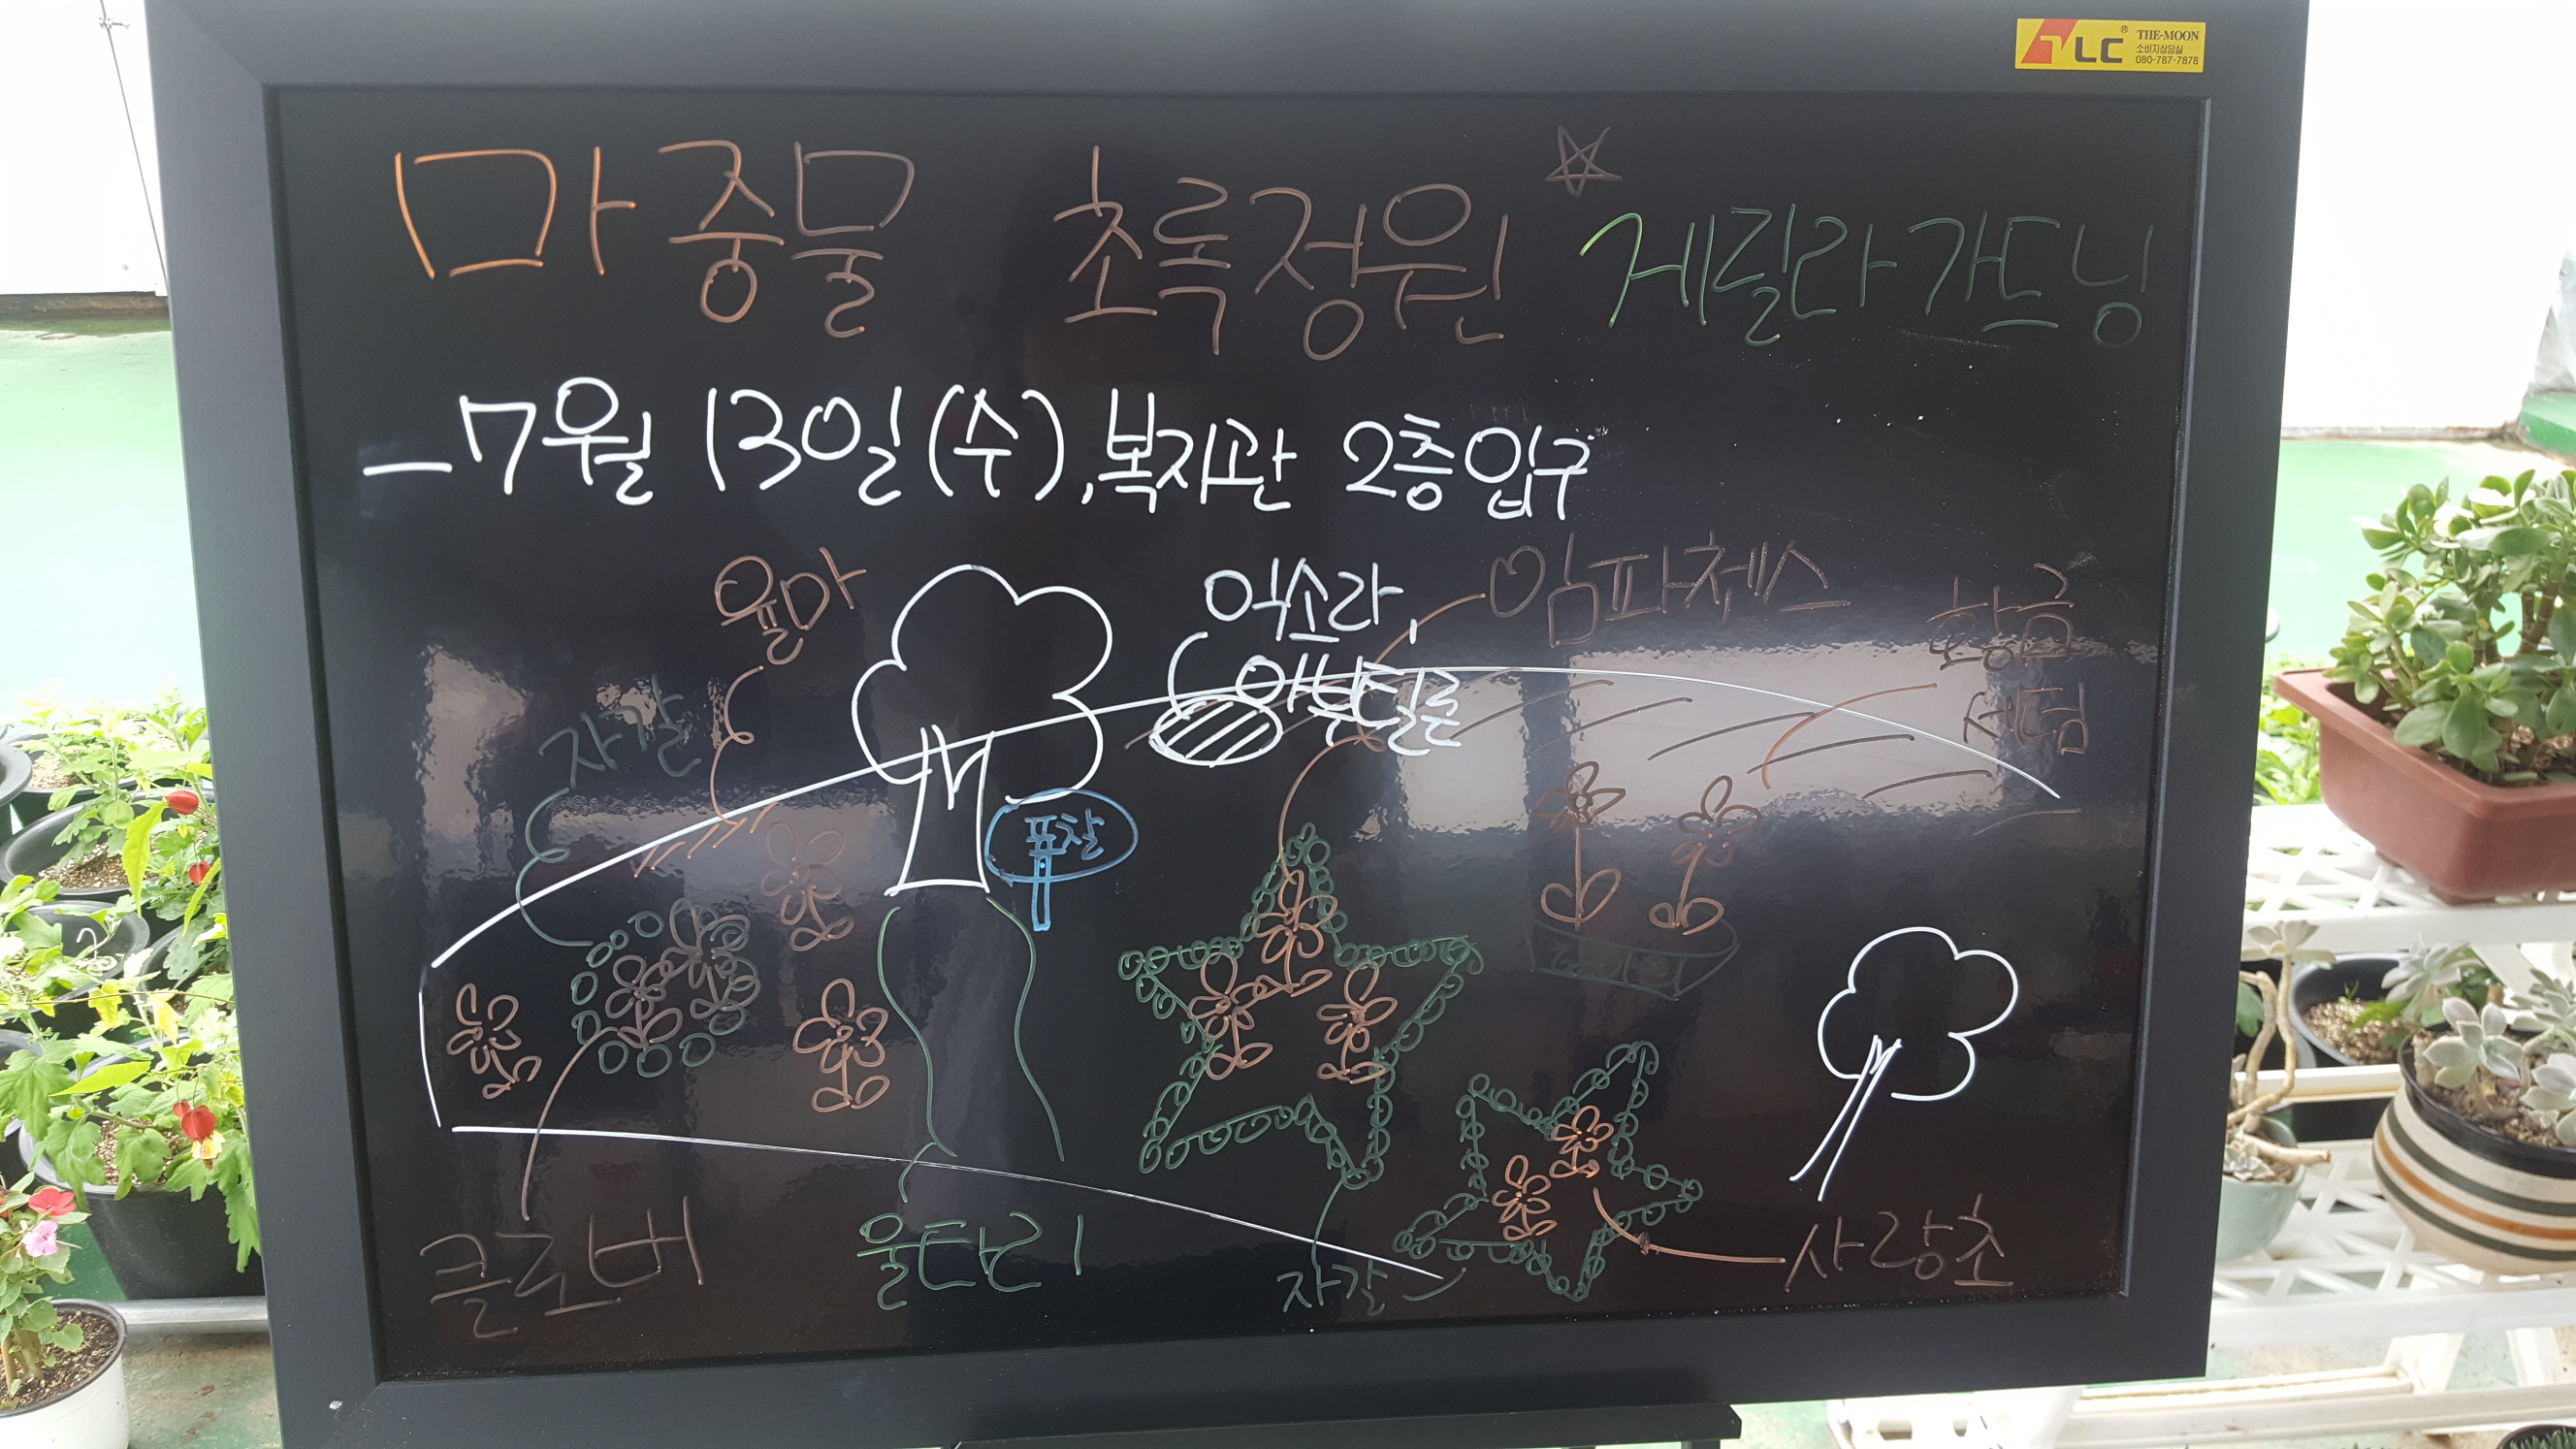 TLC® THE-MOON
소비자상담실
080-787-7878
마중물 초록정원 게릴라가드닝
-7월 13일(수), 복지관 2층입구
율마
익소라,
아부틸론
임파첸스
황금
세덤
자갈
표찰
클로버
울타리
자갈
사랑초